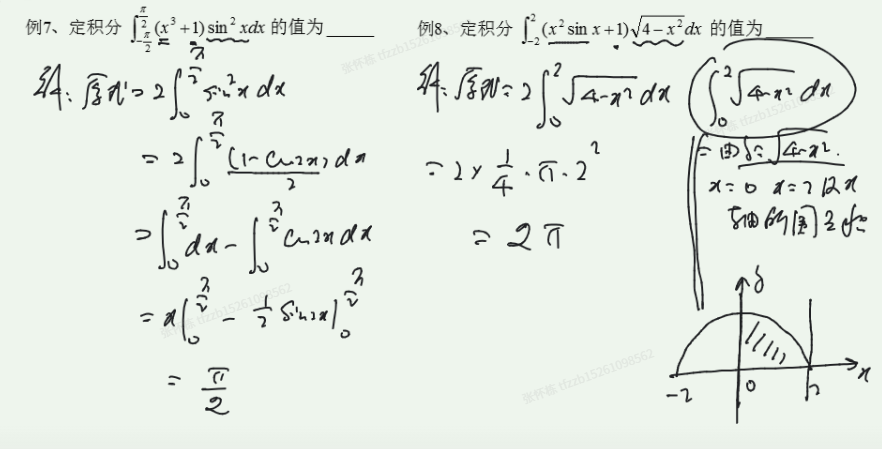 例7、定积分 ∫_{-π/2}^{π/2} (x³+1) sin² xdx 的值为_____
解: 原式 = 2∫_0^{π/2} sin²x dx
= 2∫_0^{π/2} (1-cos2x)/2 dx
= ∫_0^{π/2} dx - ∫_0^{π/2} cos2x dx
= x|_0^{π/2} - 1/2 sin2x|_0^{π/2}
= π/2
例8、定积分 ∫_{-2}^{2} (x² sin x+1)√(4-x²) dx 的值为_____
解: 原式 = 2∫_0^2 √(4-x²) dx
= 2 × 1/4 · π · 2²
= 2π
∫_0^2 √(4-x²) dx
= 由 y = √(4-x²).
x=0 x=2 及x
轴所围
y
x
-2 0 2
张怀栋 tfzzb15261098562